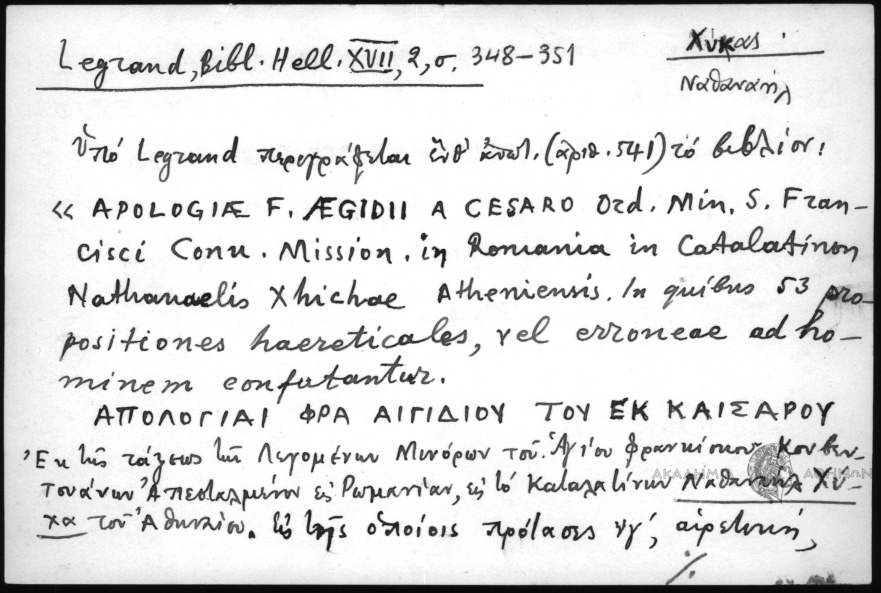 Legrand, Bibl. Hell. XVII, 2, σ. 348-351
Χύκας
Ναθαναήλ
Ὑπό Legrand περιγράφεται ἐνθ' ἀνωτ. (ἀριθ. 541) τό βιβλίον:
« APOLOGIÆ F. ÆGIDII A CESARO Ord. Min. S. Fran-
cisci Conu. Mission. in Romania in Catalatinon
Nathanaelis Xhichae Atheniensis. In quibus 53 pro-
positiones haereticales, vel erroneae ad ho-
minem confutantur.
ΑΠΟΛΟΓΙΑΙ ΦΡΑ ΑΙΓΙΔΙΟΥ ΤΟΥ ΕΚ ΚΑΙΣΑΡΟΥ
Ἐκ τῆς τάξεως τῆς Λεγομένων Μινόρων τοῦ Ἁγίου Φρανκίσκου Κονβεν-
τουάνων Ἀπεσταλμένου εἰς Ρωμανίαν, εἰς τό Καταλατίνων Ναθαναήλ Χύ-
χα τοῦ Ἀθηναίου. Εἰς τῆς ὁποίοις πρότασες νγ', αἱρετική,
./.
ΑΚΑΔΗΜΙΑ ΑΘΗΝΩΝ